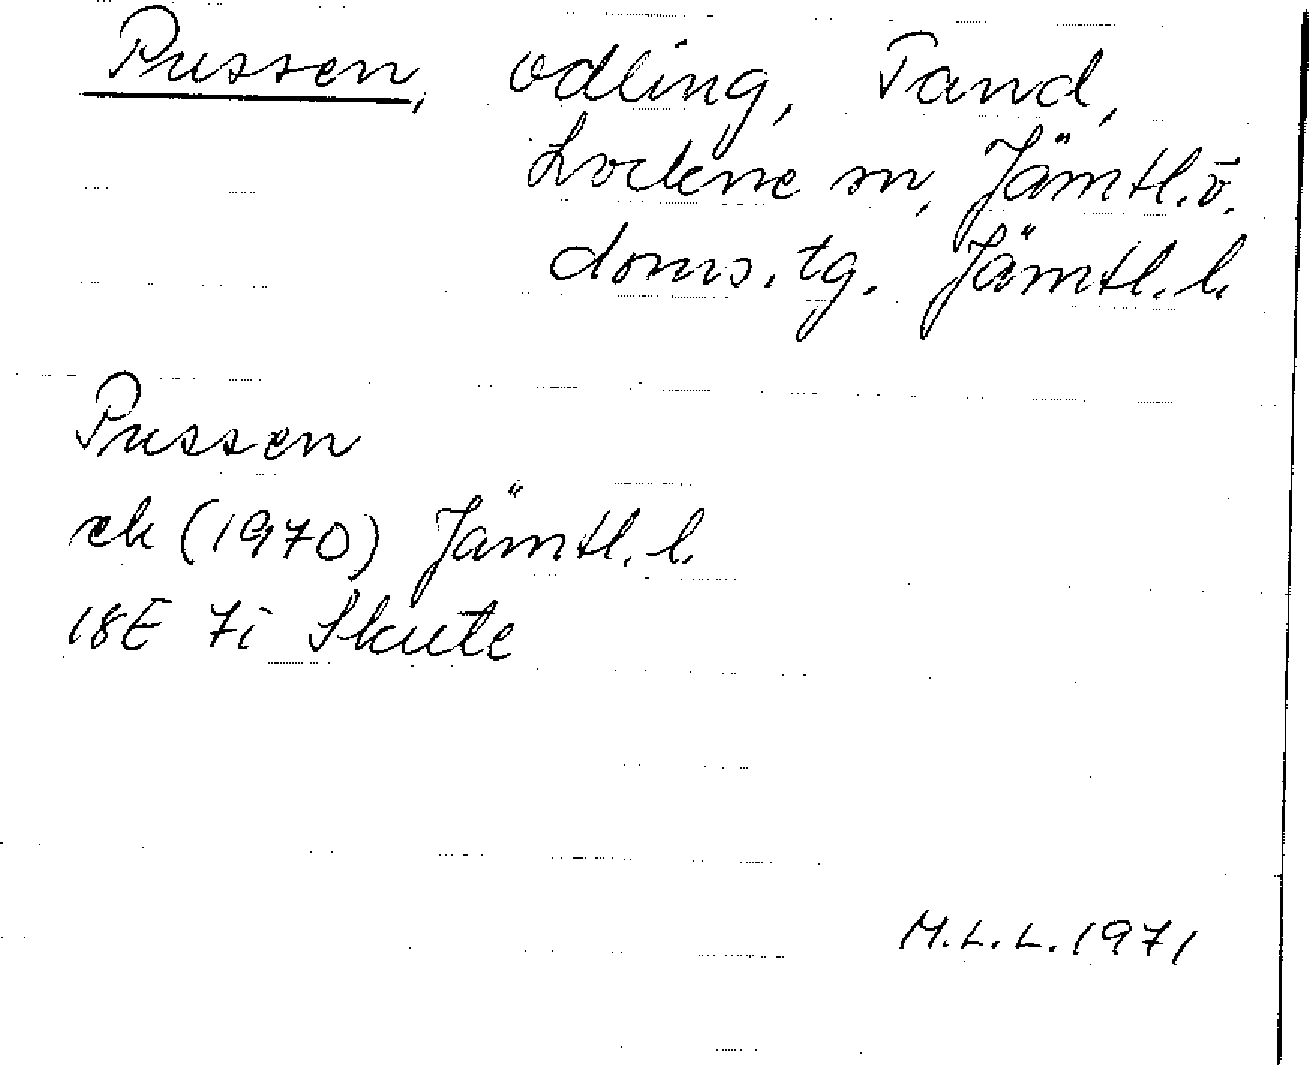 Pussen, odling, Tand,
Lockne sn, Jämtl. ö.
doms. tg. Jämtl. l.
Pussen
ek (1970) Jämtl. l.
18E 7i Skute
M.L.L. 1971